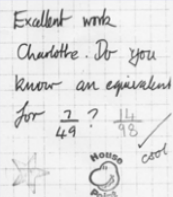 Excellent work
Charlotte. Do you
know an equivalent
for 7/49 ? 14/98
cool
House
Point